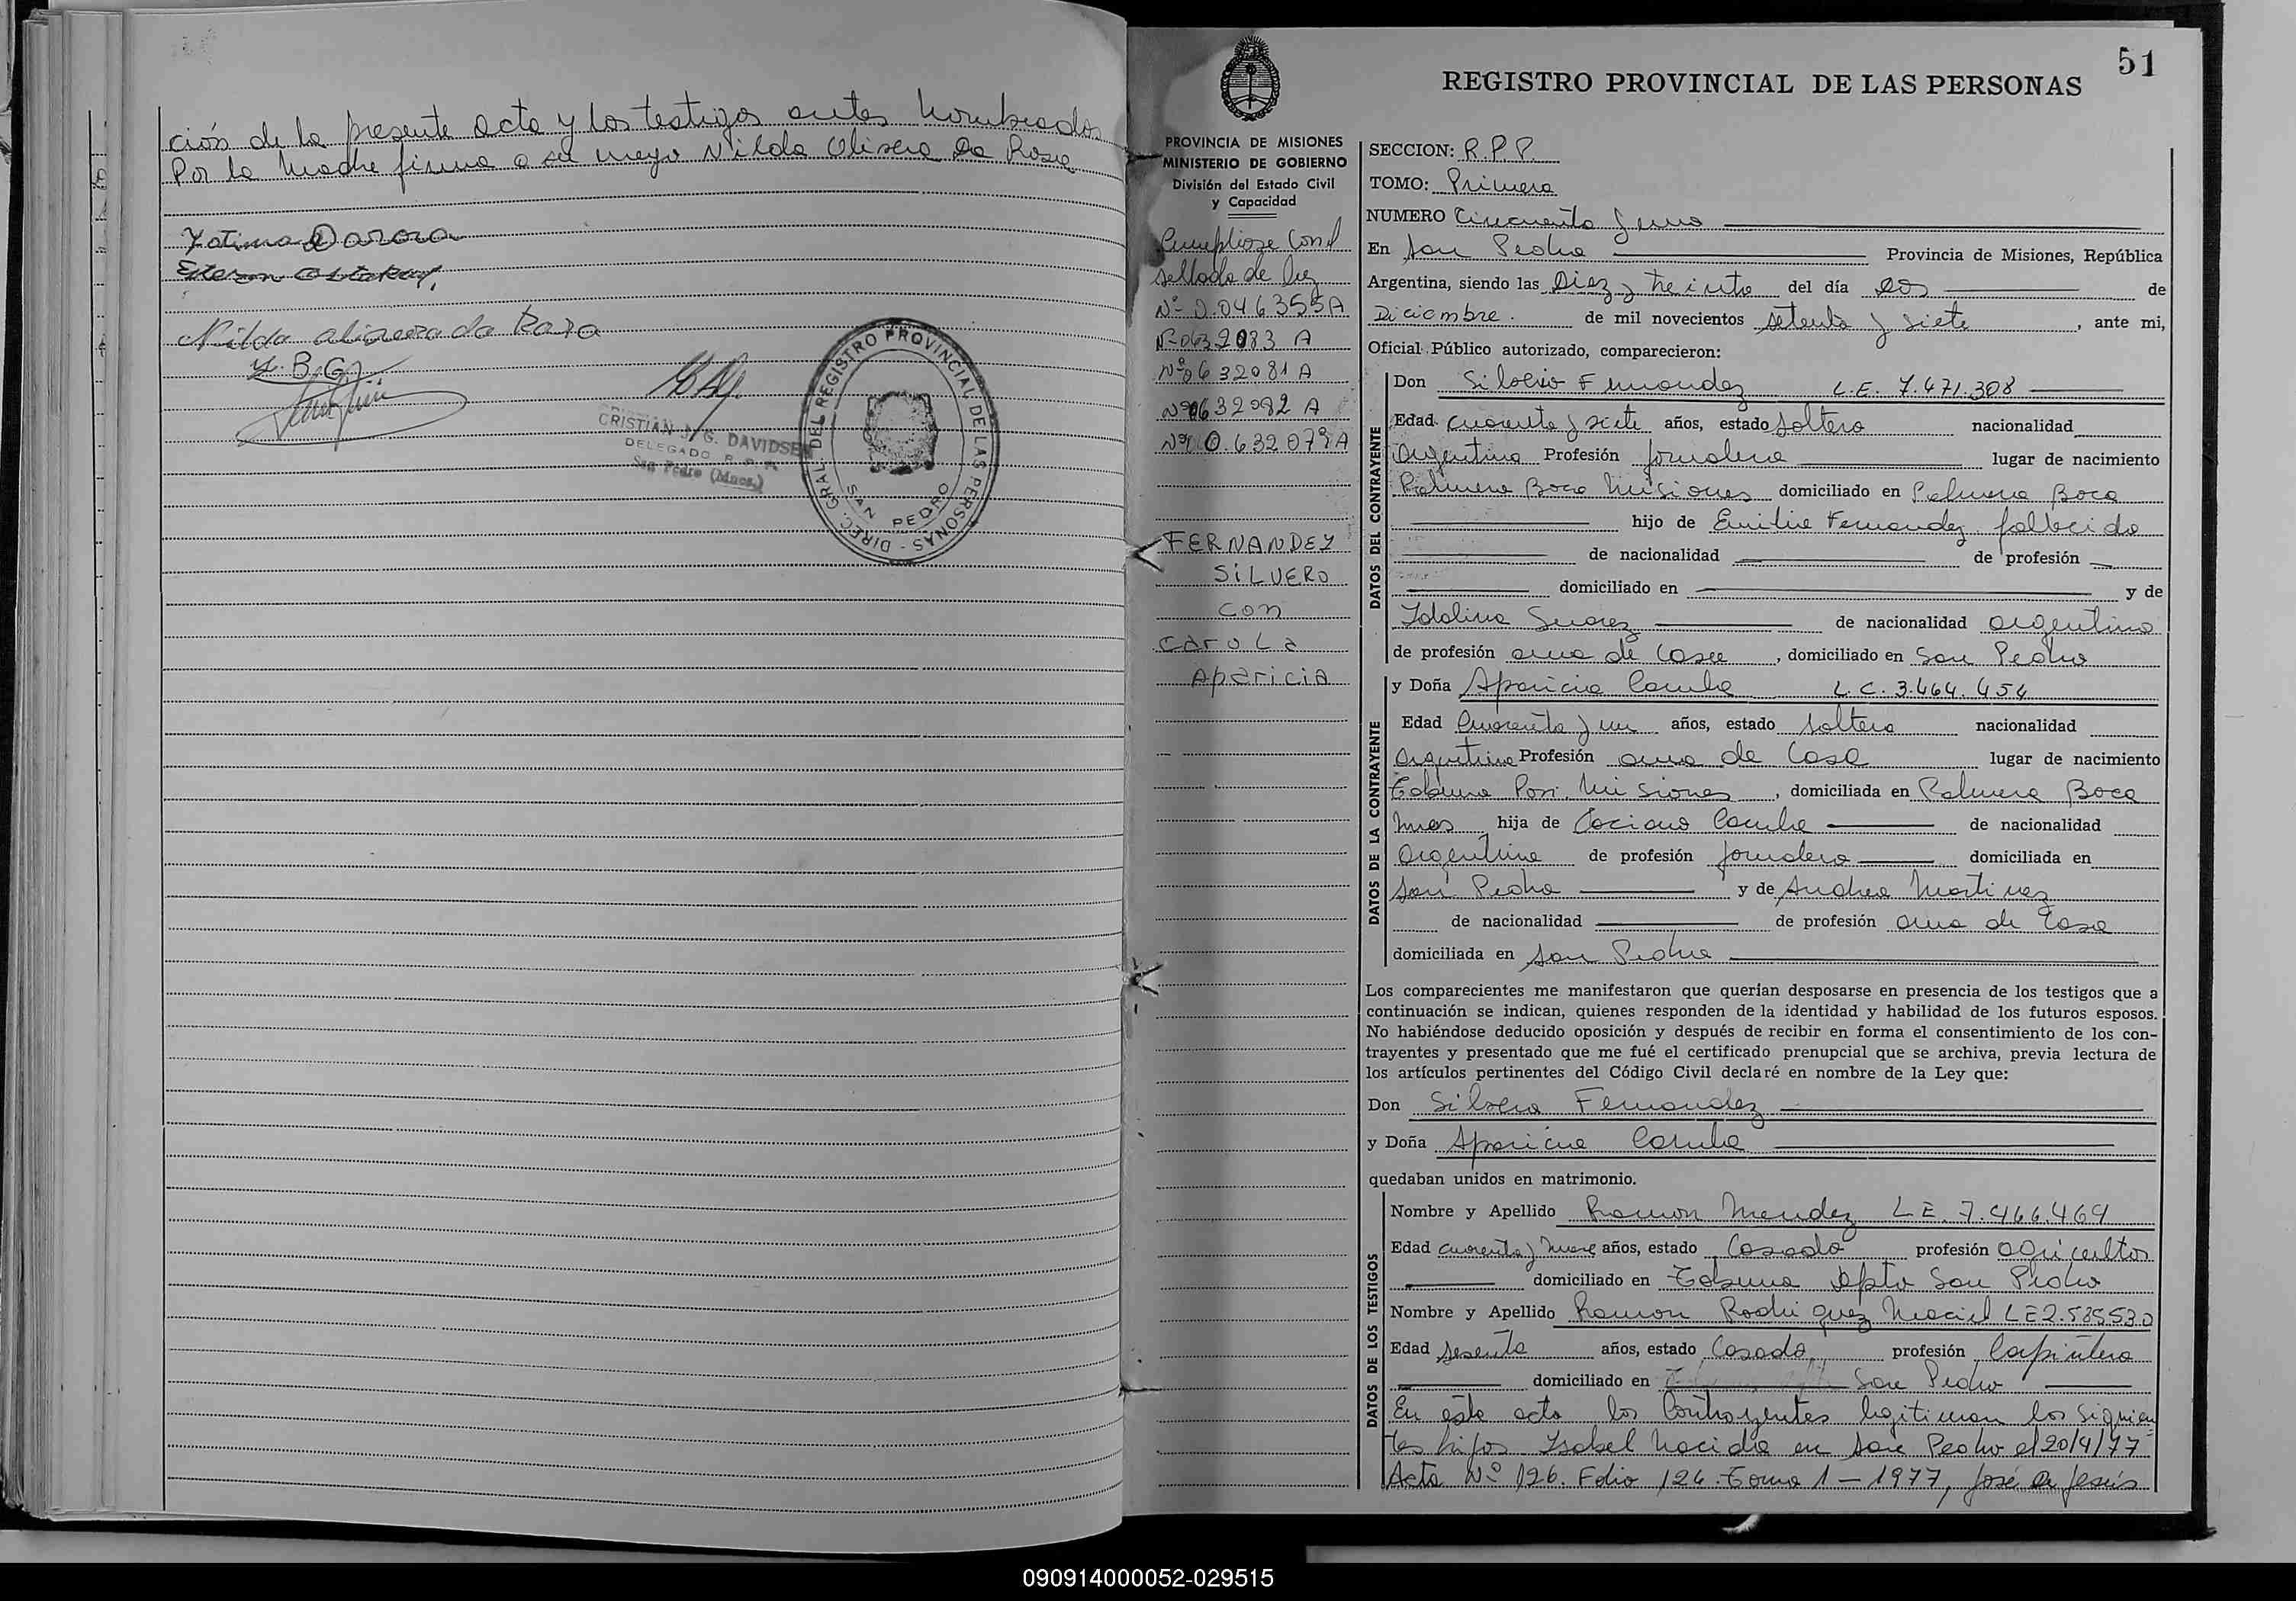 ción de la presente acta y los testigos antes nombrados
Por la madre firma a su ruego Nilda Olivera Da Rosa
Fatima Da rosa
Nilda oliveira da Rosa
CRISTIAN J. G. DAVIDSEN
DELEGADO R. P. P.
San Pedro (Mnes.)
DIREC. GRAL. DEL REGISTRO PROVINCIAL DE LAS PERSONAS
SAN PEDRO
51
REGISTRO PROVINCIAL DE LAS PERSONAS
PROVINCIA DE MISIONES
MINISTERIO DE GOBIERNO
División del Estado Civil
y Capacidad
Cumpliose con el
sellado de ley
Nº 0.046355A
Nº 0632083 A
Nº 0632081 A
Nº 0632082 A
Nº 0.632079A
FERNANDEZ
SILVERO
con
Carola
Aparicia
SECCION: R.P.P.
TOMO: Primero
NUMERO Cincuenta y uno
En San Pedro Provincia de Misiones, República
Argentina, siendo las Diez y treinta del día Dos de
Diciembre. de mil novecientos setenta y siete, ante mi,
Oficial Público autorizado, comparecieron:
DATOS DEL CONTRAYENTE
Don Silverio Fernandez L.E. 7.471.308
Edad cuarenta y siete años, estado soltero nacionalidad
Argentina Profesión jornalero lugar de nacimiento
Palmera Boca Misiones domiciliado en Palmera Boca
hijo de Emilio Fernandez fallecido
de nacionalidad de profesión
domiciliado en y de
Idalina Suarez de nacionalidad argentina
de profesión ama de casa, domiciliado en San Pedro
DATOS DE LA CONTRAYENTE
y Doña Aparicia L.C. 3.464.454
Edad Cuarenta y un años, estado soltera nacionalidad
Argentina Profesión ama de Casa lugar de nacimiento
Tobuna Misiones, domiciliada en Palmera Boca
Mnes hija de de nacionalidad
Argentina de profesión jornalero domiciliada en
San Pedro y de Andrea Martinez
de nacionalidad de profesión ama de Casa
domiciliada en San Pedro
Los comparecientes me manifestaron que querían desposarse en presencia de los testigos que a
continuación se indican, quienes responden de la identidad y habilidad de los futuros esposos.
No habiéndose deducido oposición y después de recibir en forma el consentimiento de los con-
trayentes y presentado que me fué el certificado prenupcial que se archiva, previa lectura de
los artículos pertinentes del Código Civil declaré en nombre de la Ley que:
Don Silvero Fernandez
y Doña Aparicia
quedaban unidos en matrimonio.
DATOS DE LOS TESTIGOS
Nombre y Apellido Ramon Mendez L E. 7.466.469
Edad cuarenta y nueve años, estado Casado profesión agricultor
domiciliado en Tobuna Dpto San Pedro
Nombre y Apellido Ramon Rodriguez Maciel LE 2.585530
Edad sesenta años, estado Casado, profesión Carpintero
domiciliado en San Pedro
En este acto los Contrayentes legitiman los siguien
tes hijos Isabel nacida en San Pedro el 20/4/77
Acta Nº 126. Folio 126. Tomo 1 - 1977, José de Jesús
090914000052-029515